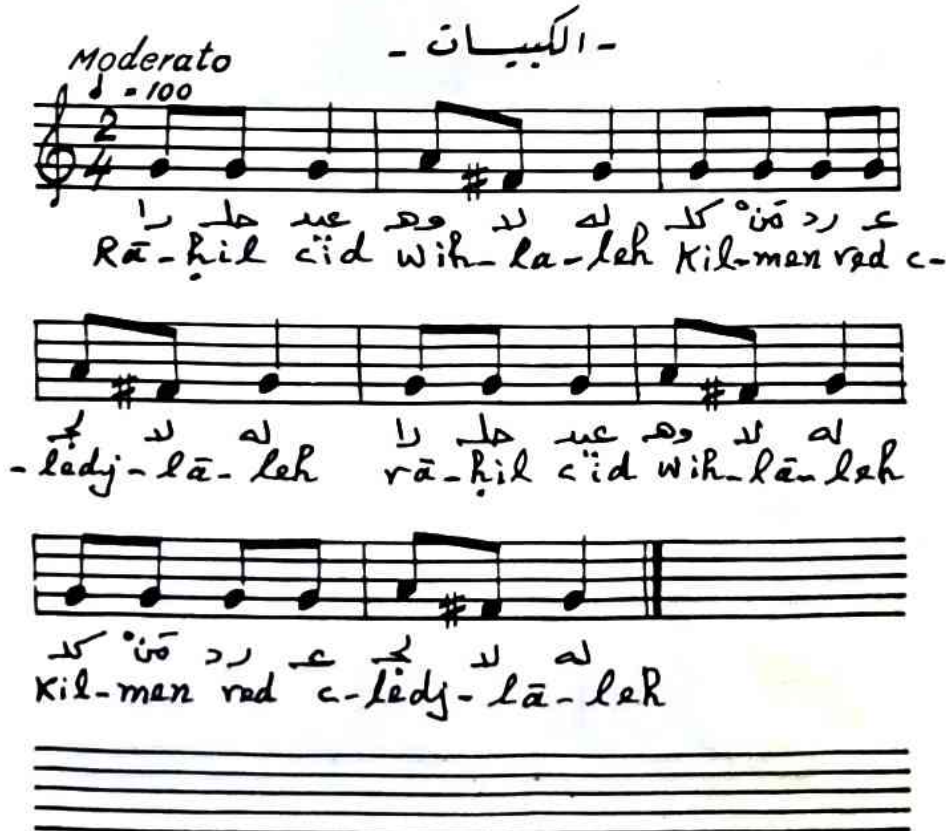 - الكبيسات -
Moderato
♩ = 100
2
4
را حلـ عيد وهـ لا له كلـ مَنْ رد عـ
Rā-ḥil c'ïd wih-la-leh Kil-men red c-
را حلـ عيد وهـ لا له
-lèdj-lā-leh rā-ḥil c'ïd wih-lā-leh
كلـ مَنْ رد عـ
Kil-men red c-lèdj-lā-leh